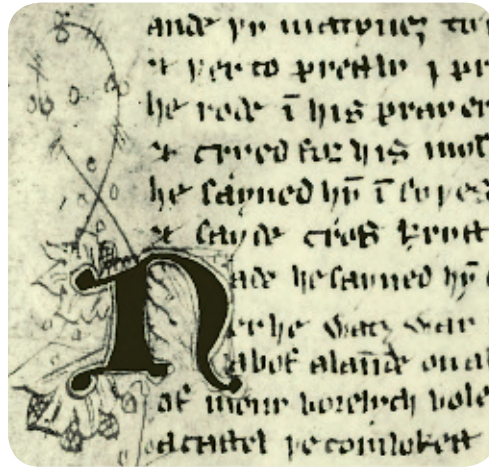 ande þy matyneȝ to
& þer to prestly I
he rode ī his prayer
& cryed for his
he sayned hȳ ī syþes
& sayde cros kryst
Nade he sayned hȳ
er he watȝ war
abof a launde on a
of mony borelych bole
a castel þe comlokest